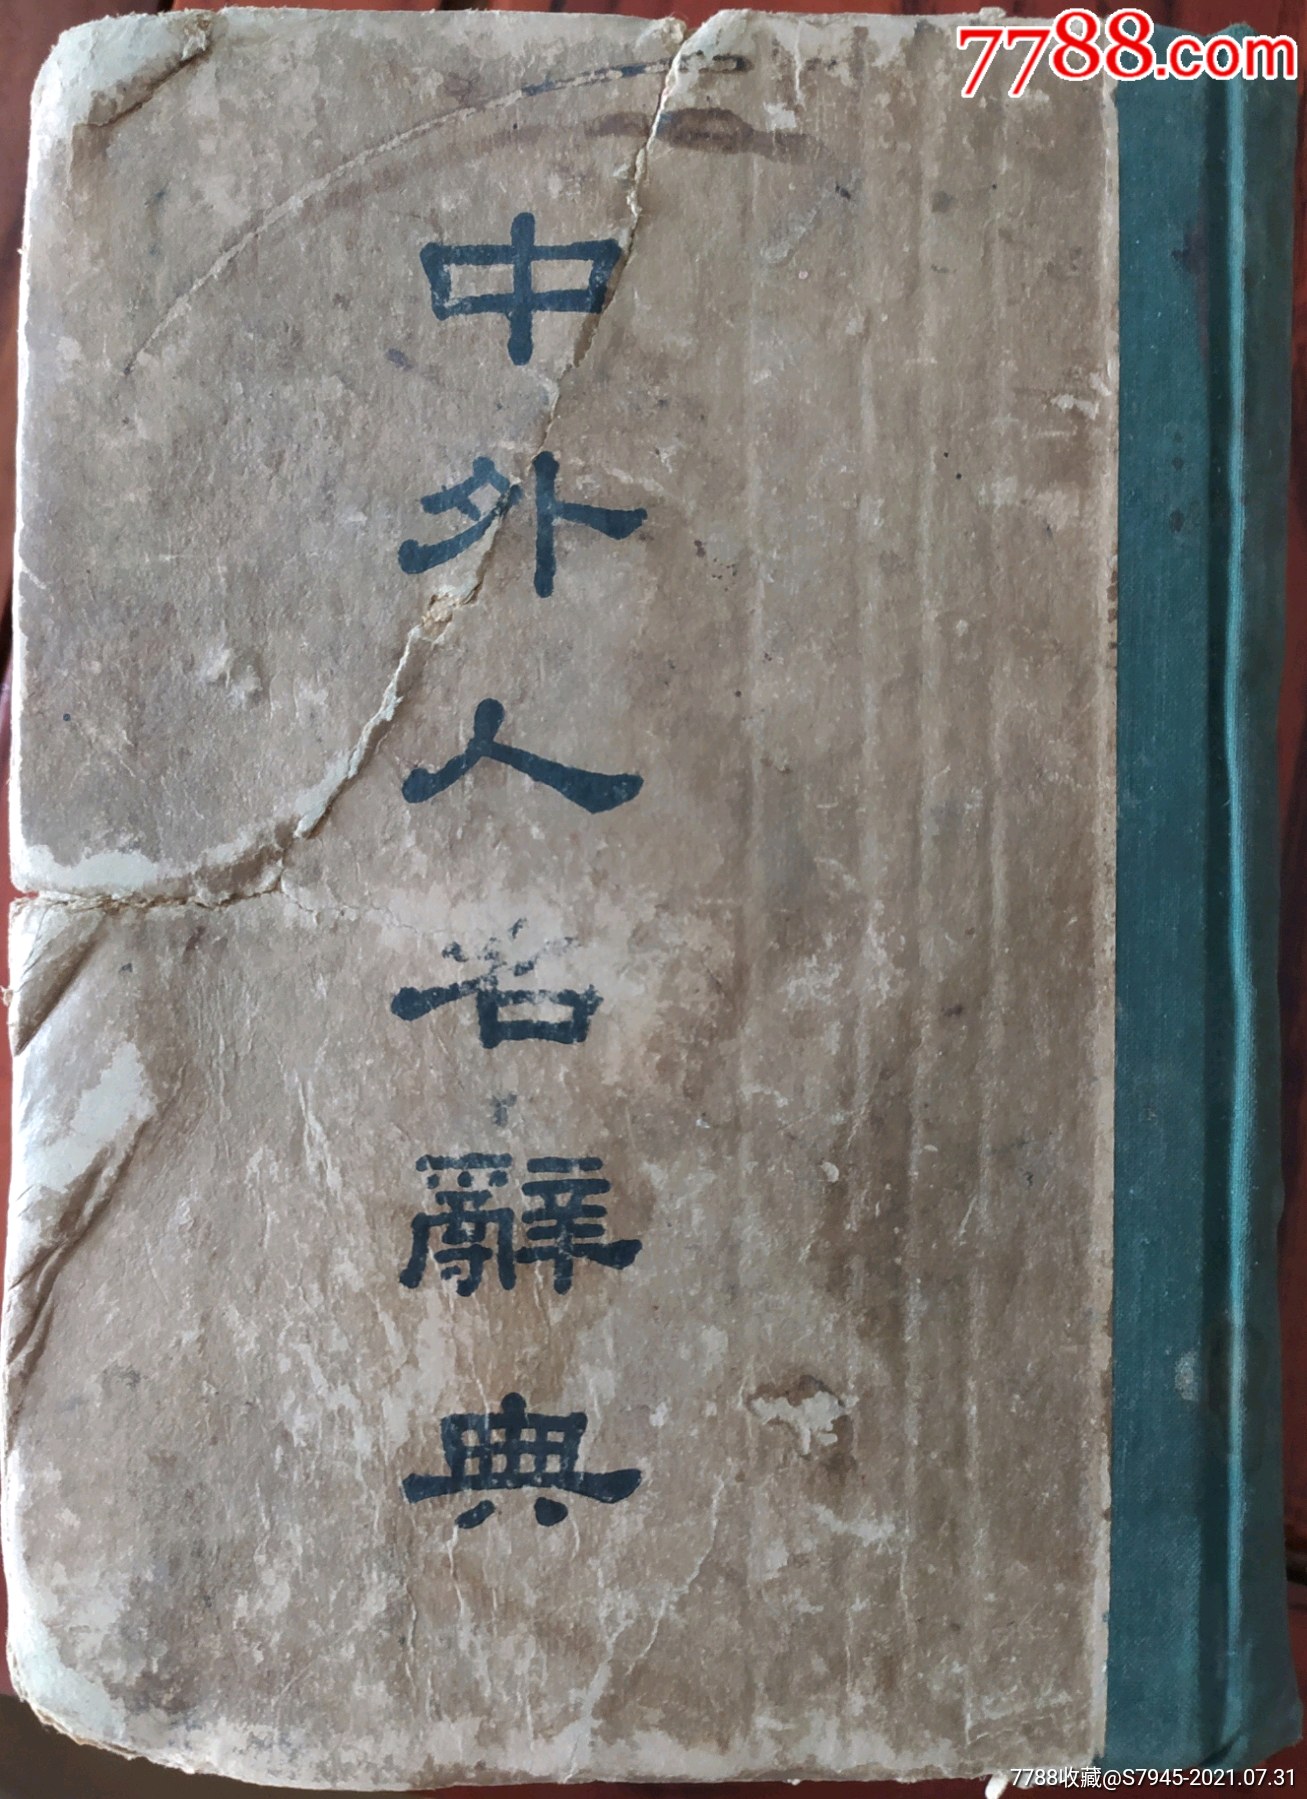 7788.com
中外人名辭典
7788收藏@S7945-2021.07.31